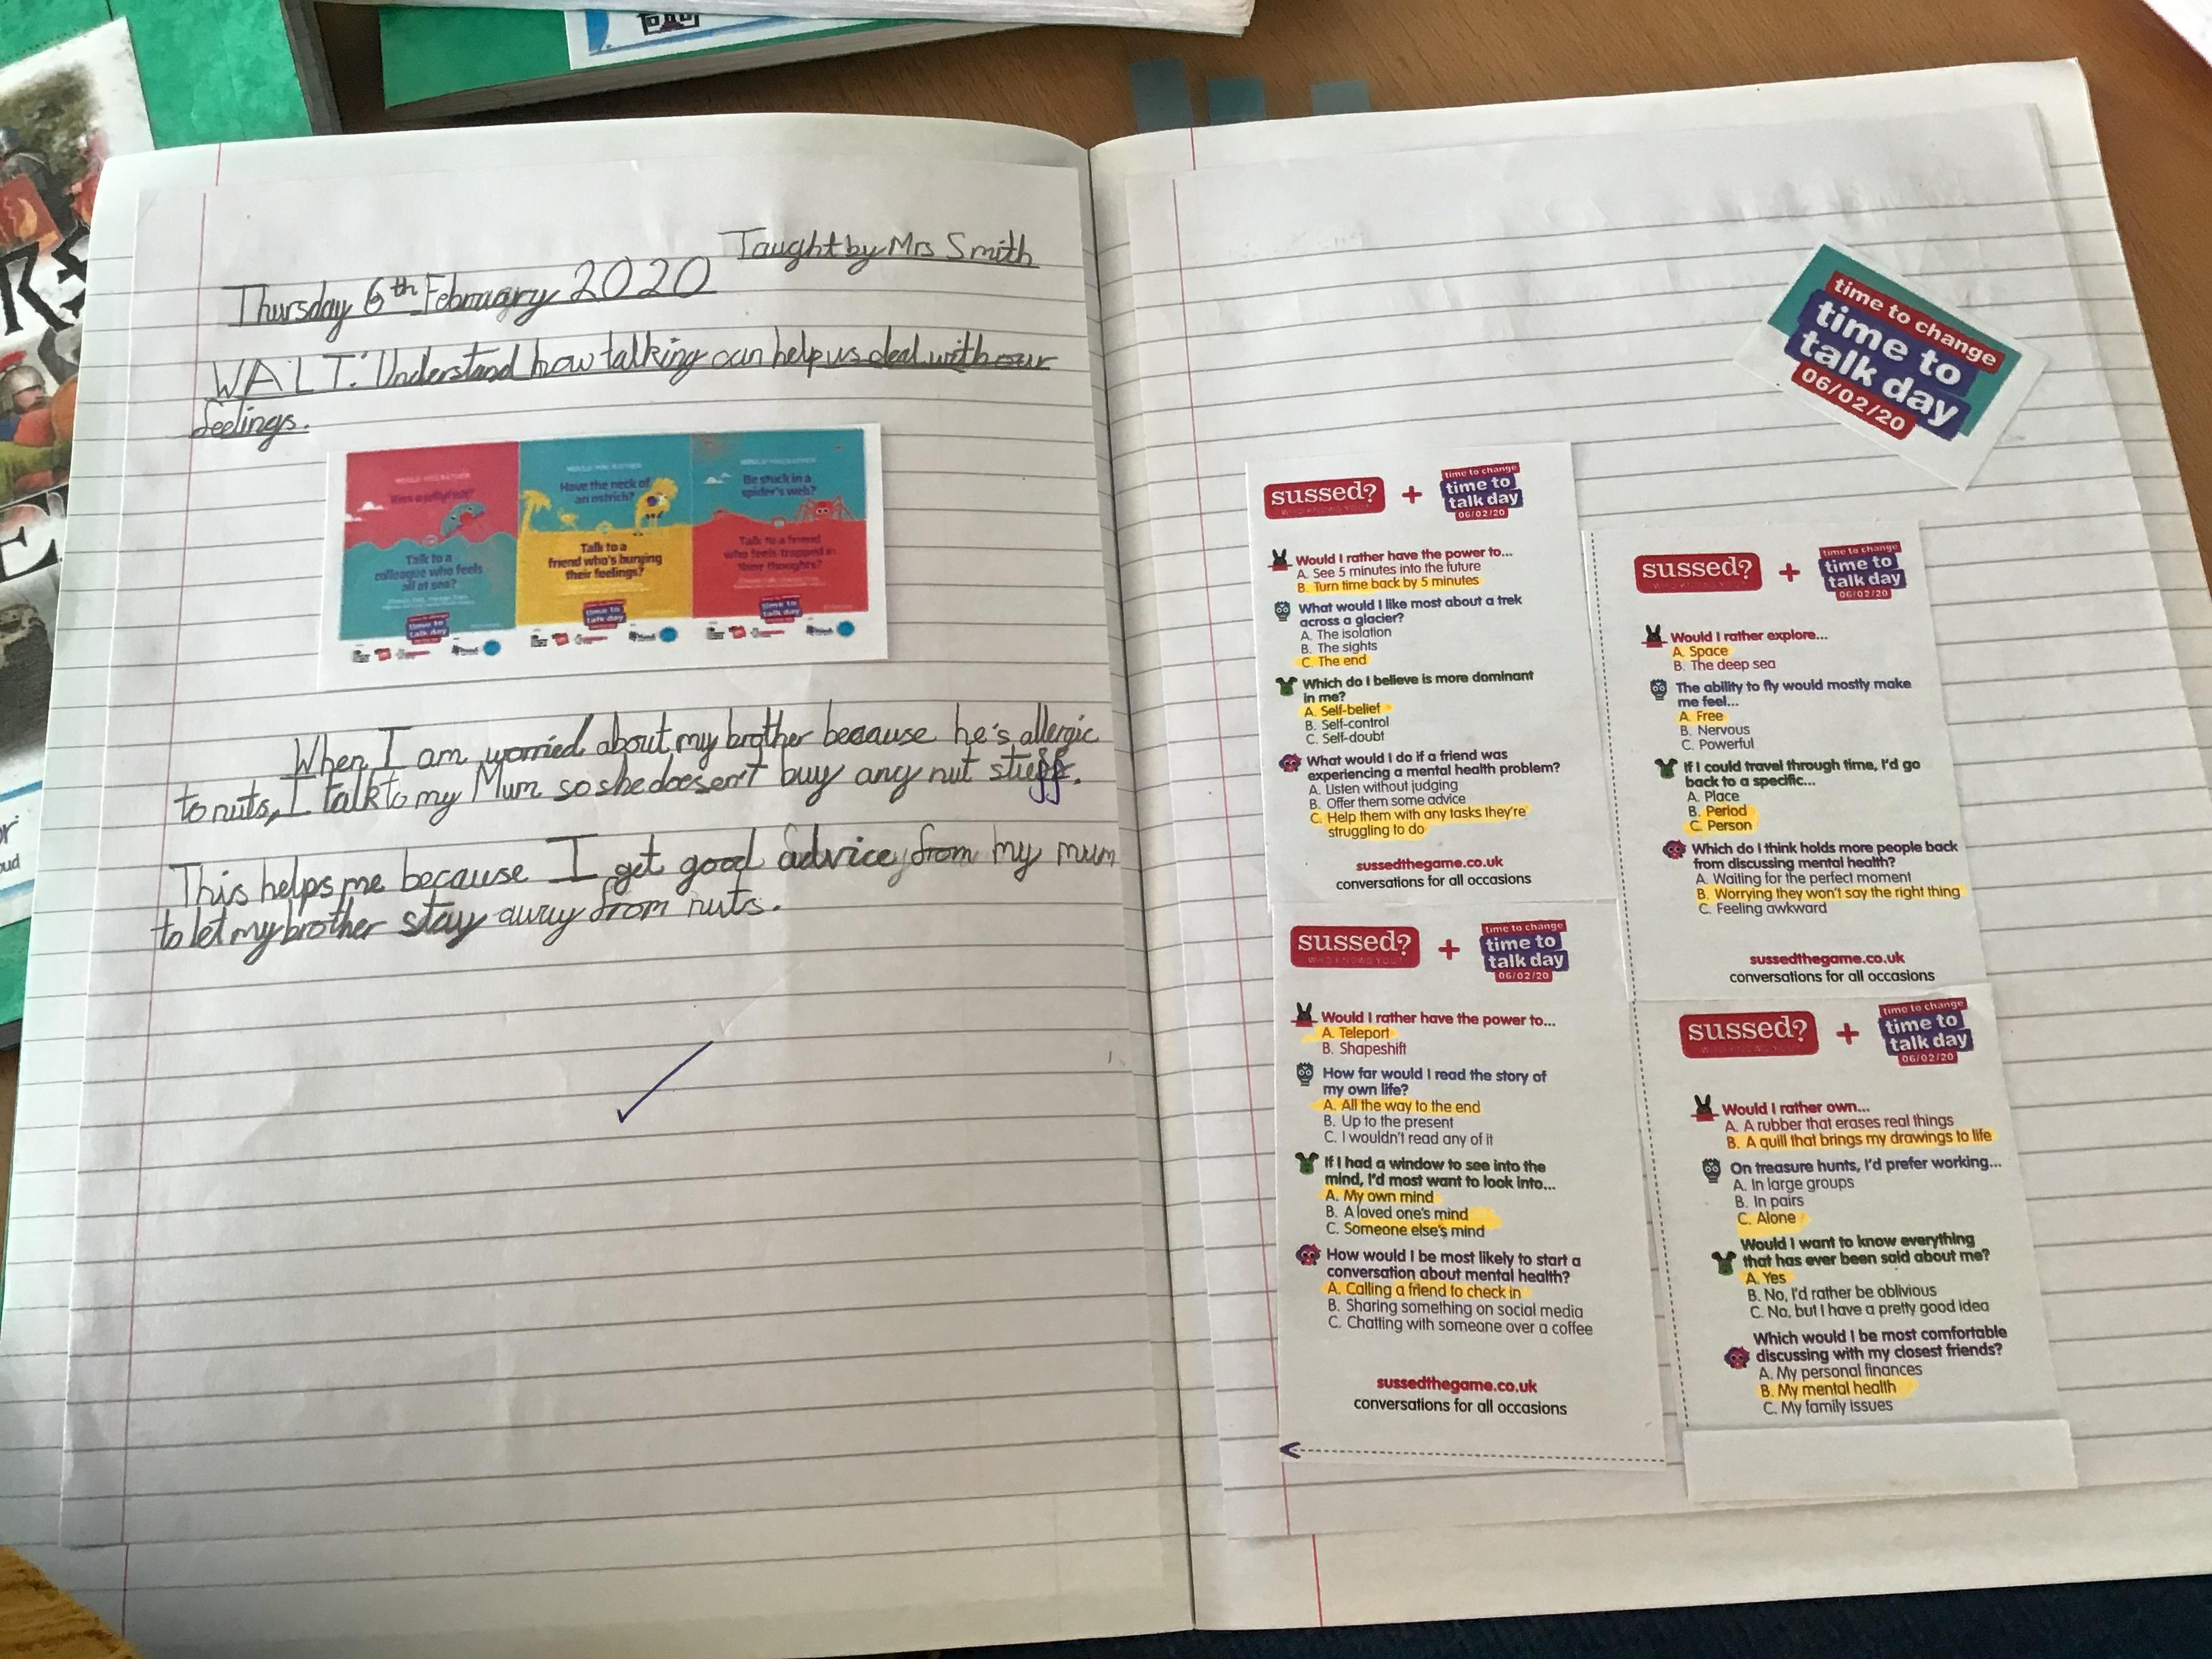 Taught by Mrs Smith
Thursday 6th February 2020
WALT: Understand how talking can help us deal with our
feelings.
WOULD YOU RATHER
Kiss a jellyfish?
Talk to a
colleague who feels
all at sea?
time to
talk day
WOULD YOU RATHER
Have the neck of
an ostrich?
Talk to a
friend who's burying
their feelings?
time to
talk day
WOULD YOU RATHER
Be stuck in a
spider's web?
Talk to a friend
who feels trapped in
their thoughts?
time to
talk day
When I am worried about my brother because he's allergic
to nuts, I talk to my Mum so she doesen't buy any nut stuff.
This helps me because I get good advice from my mum
to let my brother stay away from nuts.
time to change
time to
talk day
06/02/20
sussed?
WHO KNOWS YOU?
+
time to change
time to
talk day
06/02/20
Would I rather have the power to...
A. See 5 minutes into the future
B. Turn time back by 5 minutes
What would I like most about a trek
across a glacier?
A. The isolation
B. The sights
C. The end
Which do I believe is more dominant
in me?
A. Self-belief
B. Self-control
C. Self-doubt
What would I do if a friend was
experiencing a mental health problem?
A. Listen without judging
B. Offer them some advice
C. Help them with any tasks they're
struggling to do
sussedthegame.co.uk
conversations for all occasions
sussed?
WHO KNOWS YOU?
+
time to change
time to
talk day
06/02/20
Would I rather explore...
A. Space
B. The deep sea
The ability to fly would mostly make
me feel...
A. Free
B. Nervous
C. Powerful
If I could travel through time, I'd go
back to a specific...
A. Place
B. Period
C. Person
Which do I think holds more people back
from discussing mental health?
A. Waiting for the perfect moment
B. Worrying they won't say the right thing
C. Feeling awkward
sussedthegame.co.uk
conversations for all occasions
sussed?
WHO KNOWS YOU?
+
time to change
time to
talk day
06/02/20
Would I rather have the power to...
A. Teleport
B. Shapeshift
How far would I read the story of
my own life?
A. All the way to the end
B. Up to the present
C. I wouldn't read any of it
If I had a window to see into the
mind, I'd most want to look into...
A. My own mind
B. A loved one's mind
C. Someone else's mind
How would I be most likely to start a
conversation about mental health?
A. Calling a friend to check in
B. Sharing something on social media
C. Chatting with someone over a coffee
sussedthegame.co.uk
conversations for all occasions
sussed?
WHO KNOWS YOU?
+
time to change
time to
talk day
06/02/20
Would I rather own...
A. A rubber that erases real things
B. A quill that brings my drawings to life
On treasure hunts, I'd prefer working...
A. In large groups
B. In pairs
C. Alone
Would I want to know everything
that has ever been said about me?
A. Yes
B. No, I'd rather be oblivious
C. No, but I have a pretty good idea
Which would I be most comfortable
discussing with my closest friends?
A. My personal finances
B. My mental health
C. My family issues